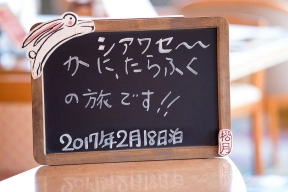 シアワセ〜〜
かに、たらふく
の旅です!!
2017年2月18日泊
松月